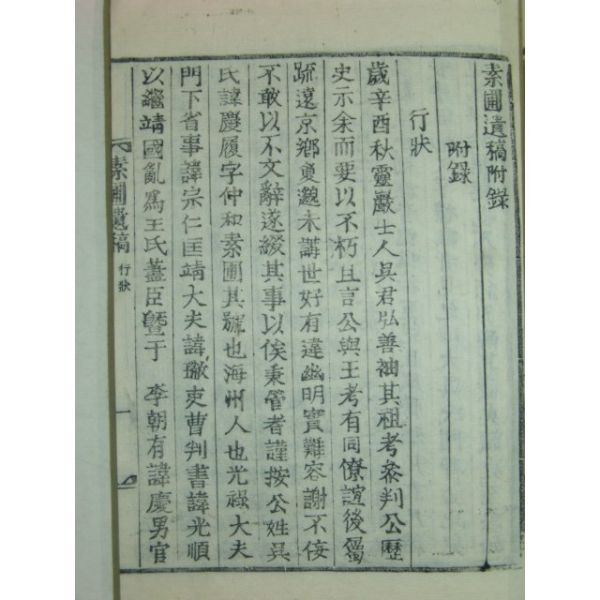 素圃遺稿附錄
附錄
行狀
歲辛酉秋靈巖士人吳君弘善袖其祖考叅判公歷
史示余而要以不朽且言公與王考有同僚誼後屬
疏遠京鄉夐邈未講世好有違幽明實難容謝不侫
不敢以不文辭遂綴其事以俟秉管者謹按公姓吳
氏諱慶履字仲和素圃其號也海州人也光祿大夫
門下省事諱宗仁匡靖大夫諱璥吏曹判書諱光順
以繼靖國亂爲王氏藎臣曁于 李朝有諱慶男官
素圃遺稿 行狀 一